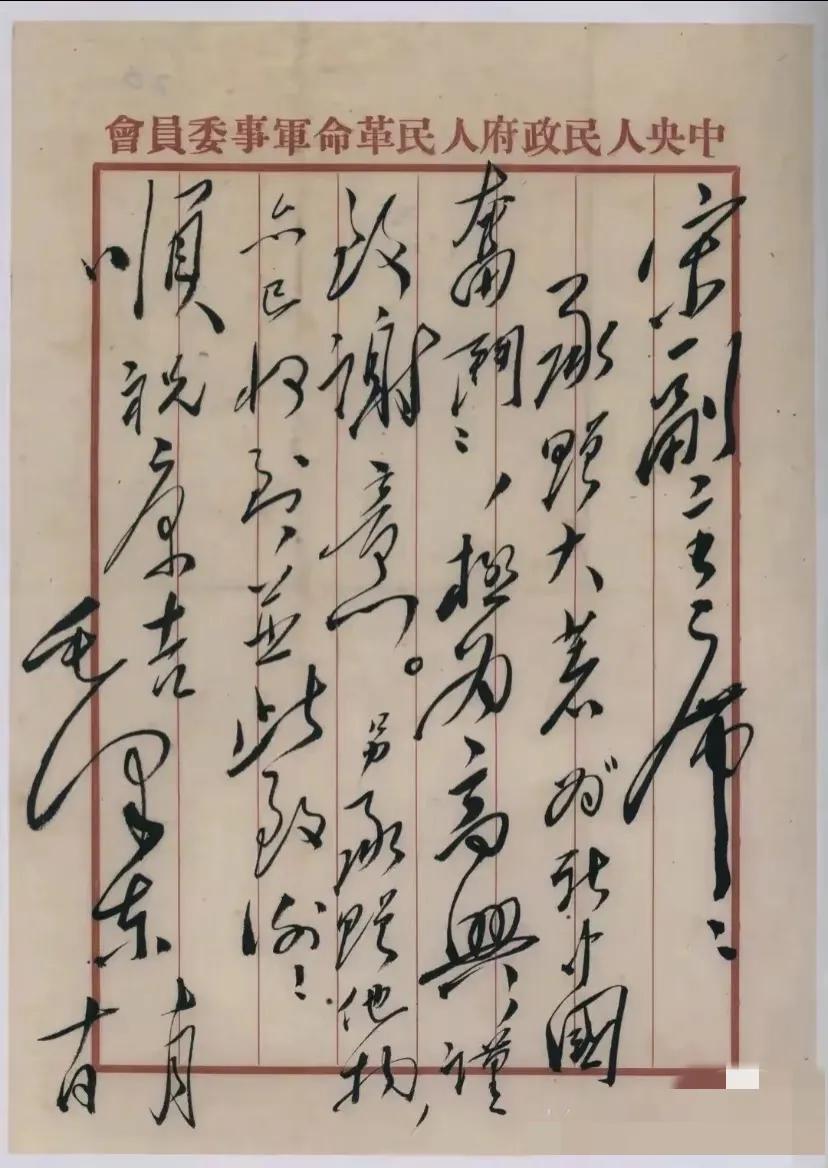 中央人民政府人民革命軍事委員會
宋副主席：
承贈大著为新中國
奮鬥，極为高興，謹
致謝意。另承贈他物，
亦已收到，並此致謝！
順祝康吉
毛澤东
十月